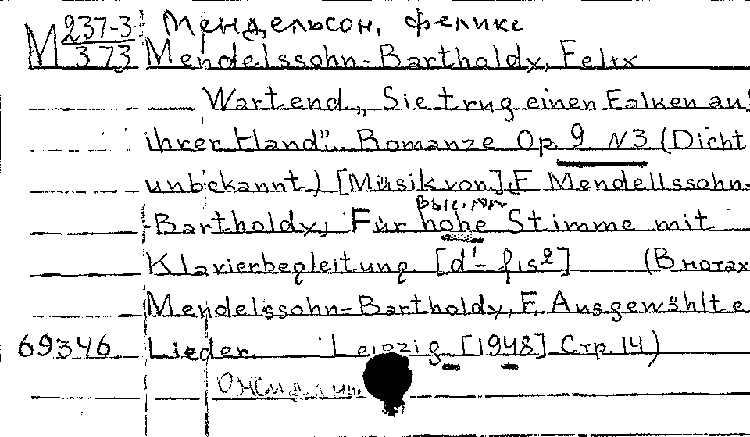 М 237-3 Мендельсон, Феликс
373 Mendelssohn-Bartholdy, Felix
Wartend „Sie trug einen Falken auf
ihrer Hand". Romanze Op. 9 N3 (Dicht.
unbekannt.) [Musik von] F. Mendellssohn-
высокого
-Bartholdy, Für hohe Stimme mit
Klavierbegleitung. [d'-fis²] (В нотах
Mendelssohn-Bartholdy, F. Ausgewählte
69346 Lieder. Leipzig [1948] Стр. 14)
Ожидание